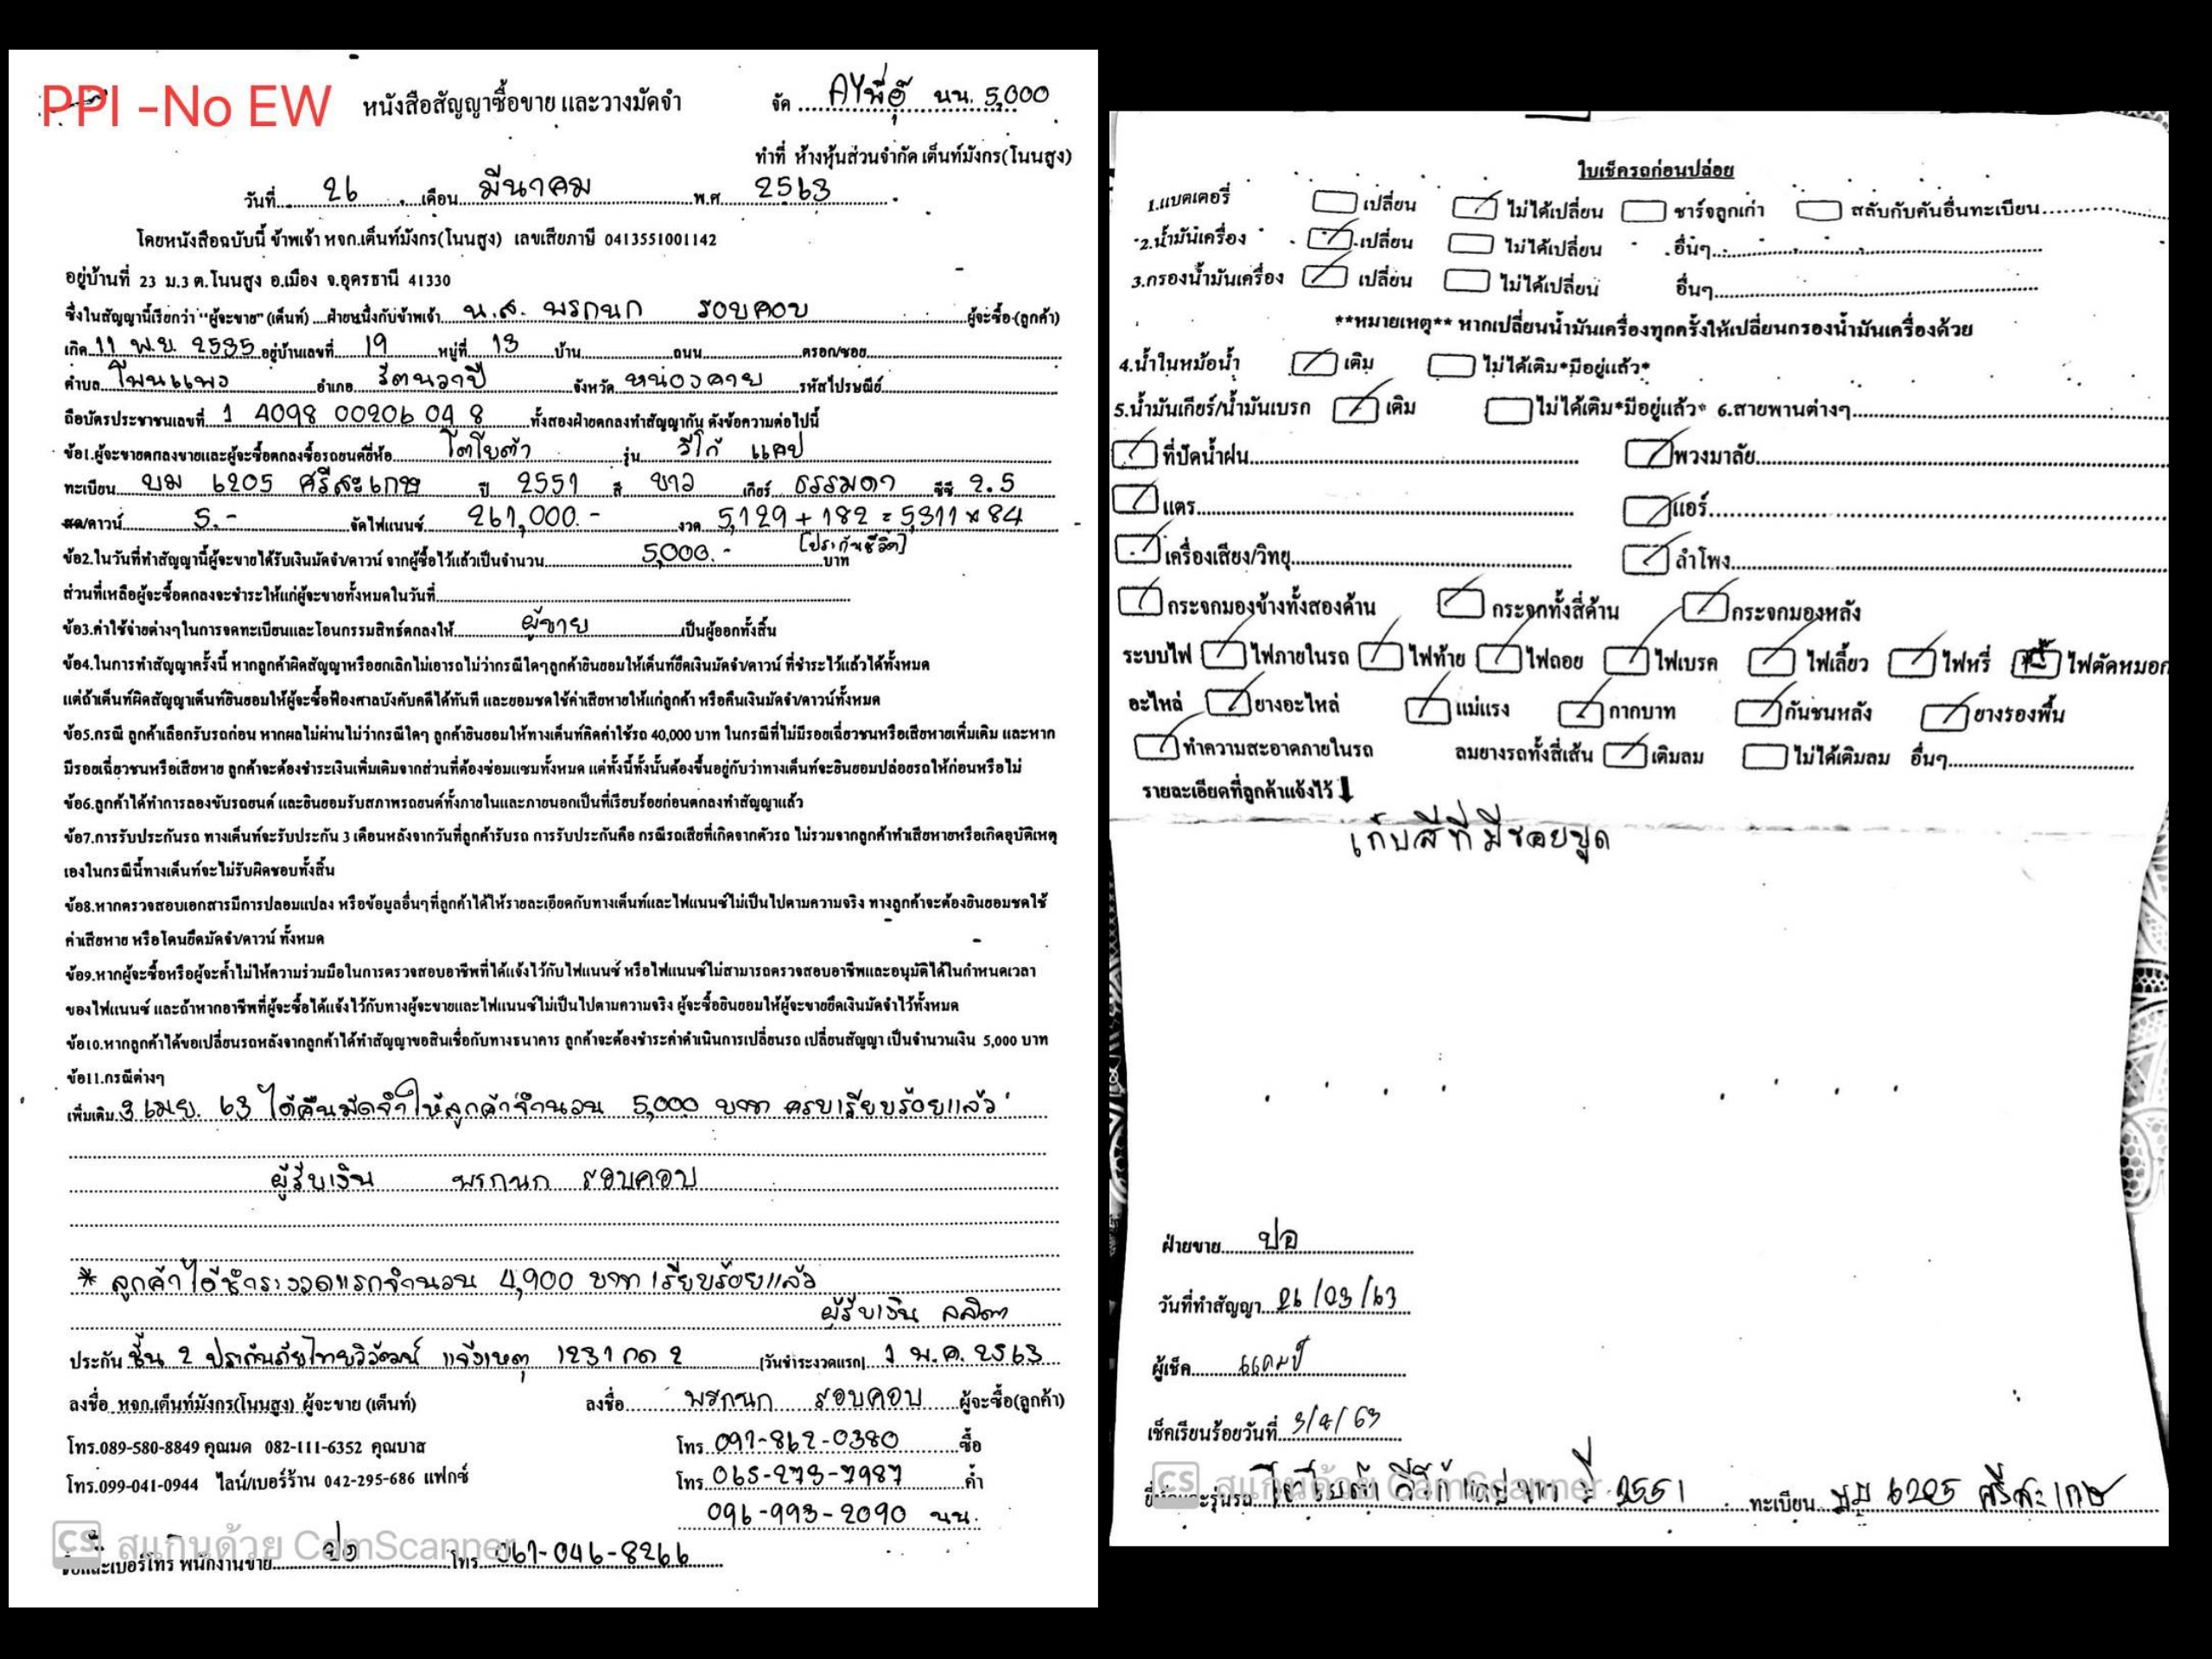 PPI -No EW
หนังสือสัญญาซื้อขาย และวางมัดจำ
จัด AYพี่อู๊ นน. 5,000
ทำที่ ห้างหุ้นส่วนจำกัด เต็นท์มังกร(โนนสูง)
วันที่ 26 เดือน มีนาคม พ.ศ 2563
โดยหนังสือฉบับนี้ ข้าพเจ้า หจก.เต็นท์มังกร(โนนสูง) เลขเสียภาษี 0413551001142
อยู่บ้านที่ 23 ม.3 ต.โนนสูง อ.เมือง จ.อุดรธานี 41330
ซึ่งในสัญญานี้เรียกว่า "ผู้จะขาย" (เต็นท์) ....ฝ่ายหนึ่งกับข้าพเจ้า น.ส. พรกนก รอบคอบ ผู้จะซื้อ(ลูกค้า)
เกิด 11 พ.ย. 2535 อยู่บ้านเลขที่ 19 หมู่ที่ 13 บ้าน ถนน ตรอก/ซอย
ตำบล โพนแพง อำเภอ รัตนวาปี จังหวัด หนองคาย รหัสไปรษณีย์
ถือบัตรประชาชนเลขที่ 1 4098 00206 04 8 ทั้งสองฝ่ายตกลงทำสัญญากัน ดังข้อความต่อไปนี้
ข้อ1.ผู้จะขายตกลงขายและผู้จะซื้อตกลงซื้อรถยนต์ยี่ห้อ โตโยต้า รุ่น วีโก้ แคป
ทะเบียน บม 6205 ศรีสะเกษ ปี 2551 สี ขาว เกียร์ ธรรมดา ซีซี 2.5
สด/ดาวน์ 5.- จัดไฟแนนซ์ 261,000.- งวด 5,129 + 182 = 5,311 x 84
[ประกันชีวิต]
ข้อ2.ในวันที่ทำสัญญานี้ผู้จะขายได้รับเงินมัดจำ/ดาวน์ จากผู้ซื้อไว้แล้วเป็นจำนวน 5,000.- บาท
ส่วนที่เหลือผู้จะซื้อตกลงจะชำระให้แก่ผู้จะขายทั้งหมดในวันที่
ข้อ3.ค่าใช้จ่ายต่างๆในการจดทะเบียนและโอนกรรมสิทธ์ตกลงให้ ผู้ขาย เป็นผู้ออกทั้งสิ้น
ข้อ4.ในการทำสัญญาครั้งนี้ หากลูกค้าผิดสัญญาหรือยกเลิกไม่เอารถไม่ว่ากรณีใดๆลูกค้ายินยอมให้เต็นท์ยึดเงินมัดจำ/ดาวน์ ที่ชำระไว้แล้วได้ทั้งหมด
แต่ถ้าเต็นท์ผิดสัญญาเต็นท์ยินยอมให้ผู้จะซื้อฟ้องศาลบังคับคดีได้ทันที และยอมชดใช้ค่าเสียหายให้แก่ลูกค้า หรือคืนเงินมัดจำ/ดาวน์ทั้งหมด
ข้อ5.กรณี ลูกค้าเลือกรับรถก่อน หากผลไม่ผ่านไม่ว่ากรณีใดๆ ลูกค้ายินยอมให้ทางเต็นท์คิดค่าใช้รถ 40,000 บาท ในกรณีที่ไม่มีรอยเฉี่ยวชนหรือเสียหายเพิ่มเติม และหาก
มีรอยเฉี่ยวชนหรือเสียหาย ลูกค้าจะต้องชำระเงินเพิ่มเติมจากส่วนที่ต้องซ่อมแซมทั้งหมด แต่ทั้งนี้ทั้งนั้นต้องขึ้นอยู่กับว่าทางเต็นท์จะยินยอมปล่อยรถให้ก่อนหรือไม่
ข้อ6.ลูกค้าได้ทำการลองขับรถยนต์ และยินยอมรับสภาพรถยนต์ทั้งภายในและภายนอกเป็นที่เรียบร้อยก่อนตกลงทำสัญญาแล้ว
ข้อ7.การรับประกันรถ ทางเต็นท์จะรับประกัน 3 เดือนหลังจากวันที่ลูกค้ารับรถ การรับประกันคือ กรณีรถเสียที่เกิดจากตัวรถ ไม่รวมจากลูกค้าทำเสียหายหรือเกิดอุบัติเหตุ
เองในกรณีนี้ทางเต็นท์จะไม่รับผิดชอบทั้งสิ้น
ข้อ8.หากตรวจสอบเอกสารมีการปลอมแปลง หรือข้อมูลอื่นๆที่ลูกค้าได้ให้รายละเอียดกับทางเต็นท์และไฟแนนซ์ไม่เป็นไปตามความจริง ทางลูกค้าจะต้องยินยอมชดใช้
ค่าเสียหาย หรือโดนยึดมัดจำ/ดาวน์ ทั้งหมด
ข้อ9.หากผู้จะซื้อหรือผู้จะค้ำไม่ให้ความร่วมมือในการตรวจสอบอาชีพที่ได้แจ้งไว้กับไฟแนนซ์ หรือไฟแนนซ์ไม่สามารถตรวจสอบอาชีพและอนุมัติได้ในกำหนดเวลา
ของไฟแนนซ์ และถ้าหากอาชีพที่ผู้จะซื้อได้แจ้งไว้กับทางผู้จะขายและไฟแนนซ์ไม่เป็นไปตามความจริง ผู้จะซื้อยินยอมให้ผู้จะขายยึดเงินมัดจำไว้ทั้งหมด
ข้อ10.หากลูกค้าได้ขอเปลี่ยนรถหลังจากลูกค้าได้ทำสัญญาขอสินเชื่อกับทางธนาคาร ลูกค้าจะต้องชำระค่าดำเนินการเปลี่ยนรถ เปลี่ยนสัญญา เป็นจำนวนเงิน 5,000 บาท
ข้อ11.กรณีต่างๆ
เพิ่มเติม 3 เมษ. 63 ได้คืนมัดจำให้ลูกค้าจำนวน 5,000 บาท ครบเรียบร้อยแล้ว
ผู้รับเงิน พรกนก รอบคอบ
* ลูกค้าได้ชำระงวดแรกจำนวน 4,900 บาท เรียบร้อยแล้ว
ผู้รับเงิน ลลิตา
ประกัน ชั้น 2 ประกันภัยไทยวิวัฒน์ แจ้งเหตุ 1231 กด 2 [วันชำระงวดแรก] 1 พ.ค. 2563
ลงชื่อ หจก.เต็นท์มังกร(โนนสูง) ผู้จะขาย (เต็นท์) ลงชื่อ พรกนก รอบคอบ ผู้จะซื้อ(ลูกค้า)
โทร.089-580-8849 คุณมด 082-111-6352 คุณบาส โทร 091-862-0380 ซื้อ
โทร.099-041-0944 ไลน์/เบอร์ร้าน 042-295-686 แฟกซ์ โทร 065-273-7987 ค้ำ
096-993-2090 นน.
CS สแกนด้วย CamScanner
ชื่อและเบอร์โทร พนักงานขาย ปอ โทร 061-046-8266
ใบเช็ครถก่อนปล่อย
1.แบตเตอรี่ เปลี่ยน ไม่ได้เปลี่ยน ชาร์จลูกเก่า สลับกับคันอื่นทะเบียน
2.น้ำมันเครื่อง เปลี่ยน ไม่ได้เปลี่ยน อื่นๆ
3.กรองน้ำมันเครื่อง เปลี่ยน ไม่ได้เปลี่ยน อื่นๆ
**หมายเหตุ** หากเปลี่ยนน้ำมันเครื่องทุกครั้งให้เปลี่ยนกรองน้ำมันเครื่องด้วย
4.น้ำในหม้อน้ำ เติม ไม่ได้เติม*มีอยู่แล้ว*
5.น้ำมันเกียร์/น้ำมันเบรก เติม ไม่ได้เติม*มีอยู่แล้ว* 6.สายพานต่างๆ
ที่ปัดน้ำฝน พวงมาลัย
แตร แอร์
เครื่องเสียง/วิทยุ ลำโพง
กระจกมองข้างทั้งสองด้าน กระจกทั้งสี่ด้าน กระจกมองหลัง
ระบบไฟ ไฟภายในรถ ไฟท้าย ไฟถอย ไฟเบรค ไฟเลี้ยว ไฟหรี่ ไฟตัดหมอก
อะไหล่ ยางอะไหล่ แม่แรง กากบาท กันชนหลัง ยางรองพื้น
ทำความสะอาดภายในรถ ลมยางรถทั้งสี่เส้น เติมลม ไม่ได้เติมลม อื่นๆ
รายละเอียดที่ลูกค้าแจ้งไว้
เก็บสีที่มีรอยขูด
ฝ่ายขาย ปอ
วันที่ทำสัญญา 26/03/63
ผู้เช็ค แคมป์
เช็คเรียบร้อยวันที่ 3/4/63
CS สแกนด้วย CamScanner
ยี่ห้อและรุ่นรถ โตโยต้า วีโก้ แคป ขาว ปี 2551 ทะเบียน บม 6205 ศรีสะเกษ